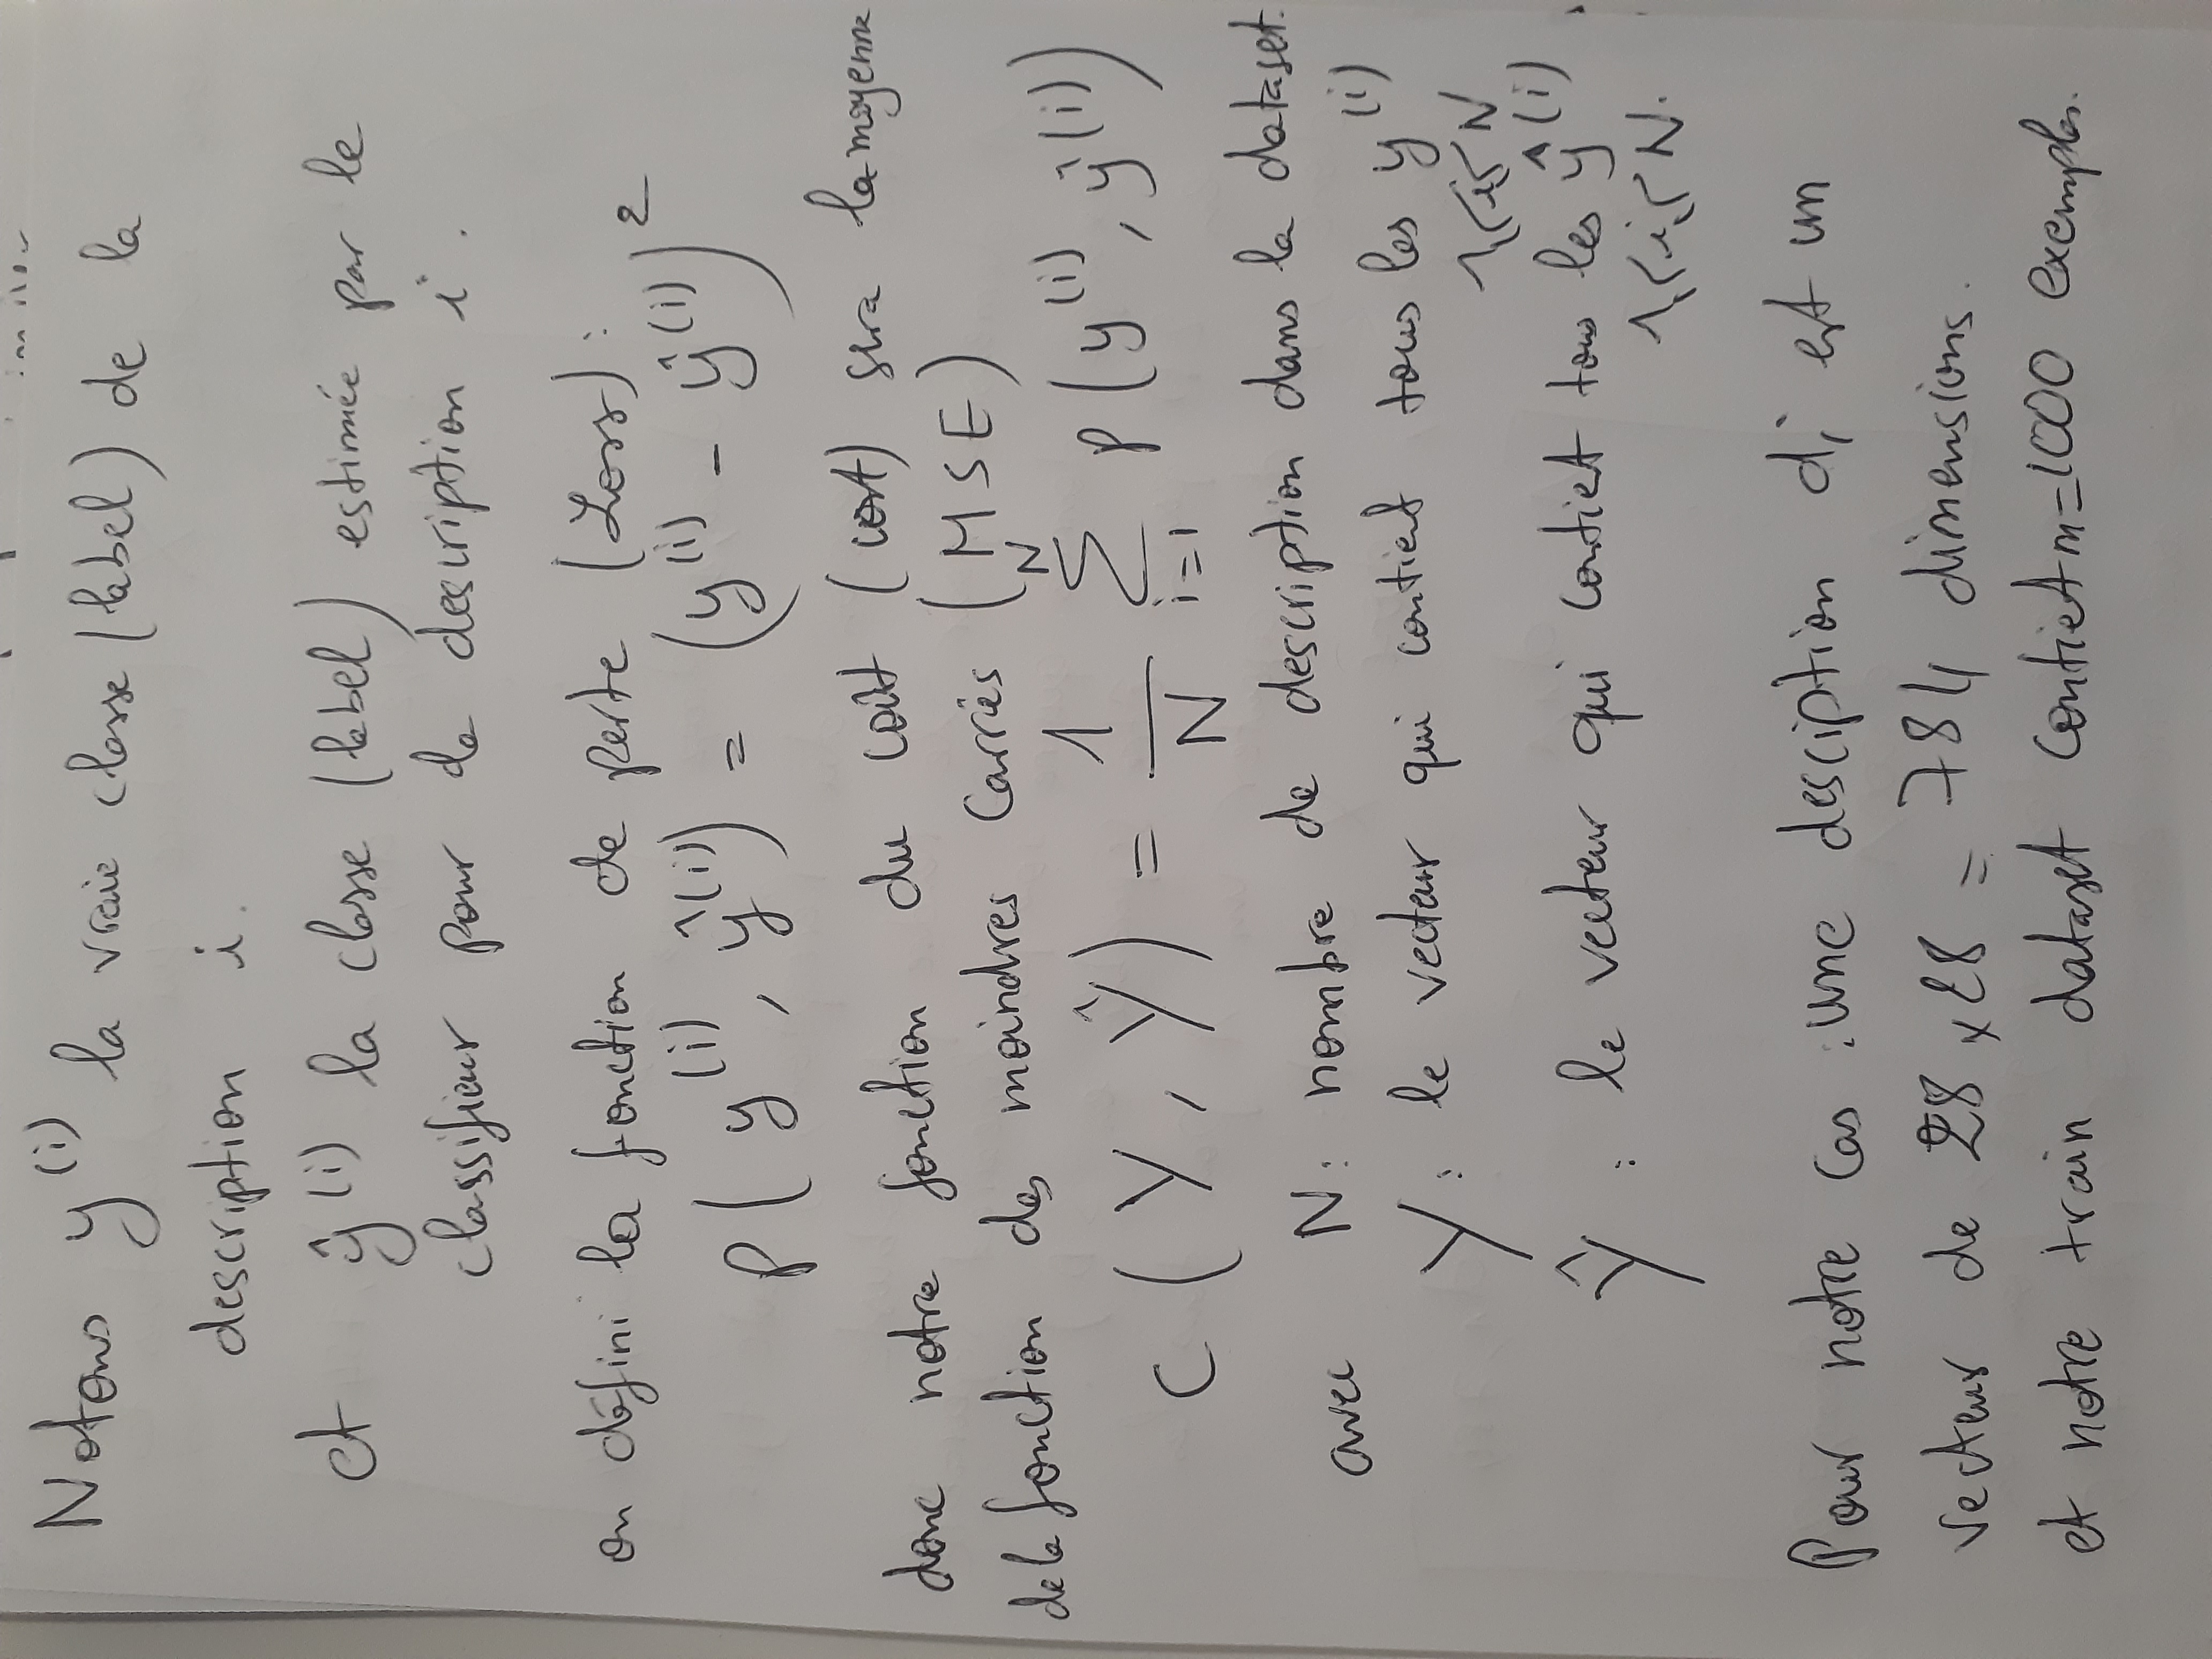 Notons y^(i) la vraie classe (label) de la
description i.
et ŷ^(i) la classe (label) estimée par le
classifieur pour la description i.
on défini la fonction de perte (Loss):
P( y^(i), ŷ^(i) ) = ( y^(i) - ŷ^(i) )^2
donc notre fonction du coût (cost) sera la moyenne
de la fonction des moindres carrés (MSE)
C ( Y, Ŷ ) = 1/N ∑_{i=1}^{N} P( y^(i), ŷ^(i) )
avec N: nombre de description dans la dataset.
Y: le vecteur qui contient tous les y^(i)
1≤i≤N
Ŷ : le vecteur qui contiet tous les ŷ^(i).
1≤i≤N.
Pour notre cas : une desciption di est un
vecteur de 28 x 28 = 784 dimensions.
et notre train dataset contiet m=1000 exemples.